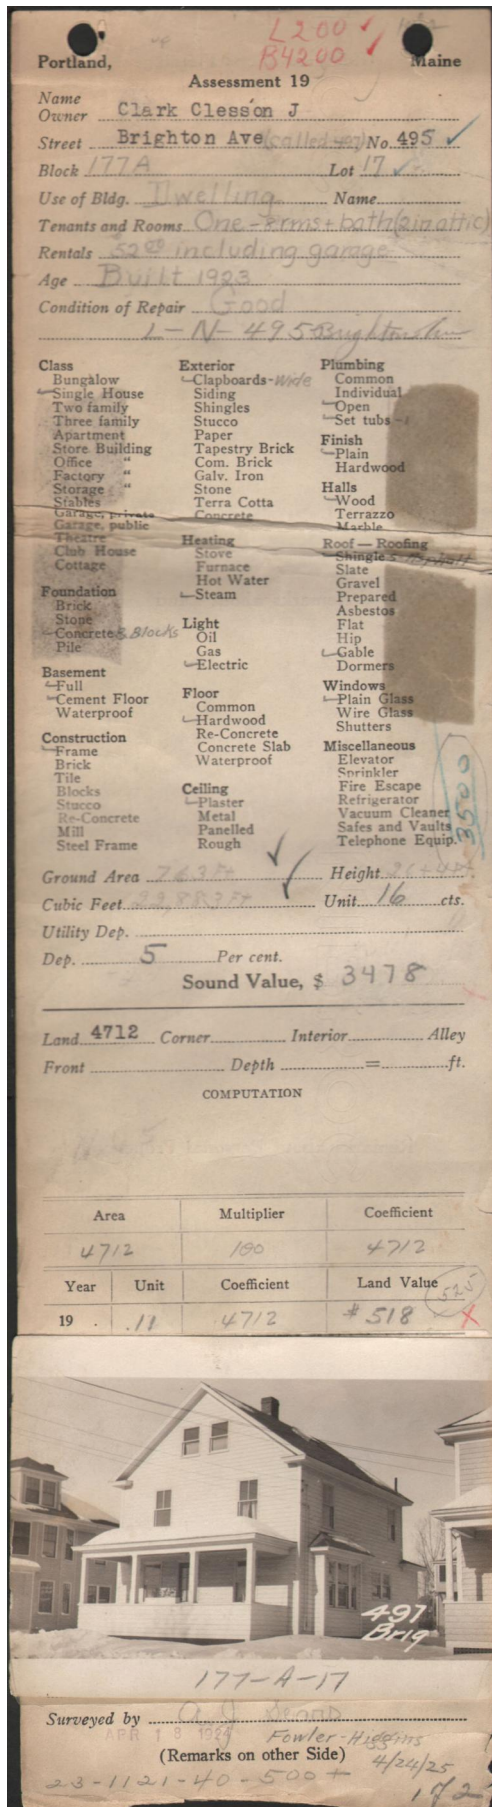 L 200
B 4200
Portland, Maine
Assessment 19
Name
Owner Clark Clesson J
Street Brighton Ave (called 497) No. 495
Block 177A Lot 17
Use of Bldg. Dwelling Name
Tenants and Rooms One - 8 rms + bath (2 in attic)
Rentals 52.00 including garage
Age Built 1923
Condition of Repair Good
L-N-495 Brighton Ave
Class
Bungalow
Single House
Two family
Three family
Apartment
Store Building
Office "
Factory "
Storage "
Stables
Garage, private
Garage, public
Theatre
Club House
Cottage
Foundation
Brick
Stone
Concrete & Blocks
Pile
Basement
Full
Cement Floor
Waterproof
Construction
Frame
Brick
Tile
Blocks
Stucco
Re-Concrete
Mill
Steel Frame
Exterior
Clapboards - Wide
Siding
Shingles
Stucco
Paper
Tapestry Brick
Com. Brick
Galv. Iron
Stone
Terra Cotta
Concrete
Heating
Stove
Furnace
Hot Water
Steam
Light
Oil
Gas
Electric
Floor
Common
Hardwood
Re-Concrete
Concrete Slab
Waterproof
Ceiling
Plaster
Metal
Panelled
Rough
Plumbing
Common
Individual
Open
Set tubs - 1
Finish
Plain
Hardwood
Halls
Wood
Terrazzo
Marble
Roof — Roofing
Shingles Asphalt
Slate
Gravel
Prepared
Asbestos
Flat
Hip
Gable
Dormers
Windows
Plain Glass
Wire Glass
Shutters
Miscellaneous
Elevator
Sprinkler
Fire Escape
Refrigerator
Vacuum Cleaner
Safes and Vaults
Telephone Equip.
3500
Ground Area 763 Ft Height 26+4 Ft.
Cubic Feet 22,883 Ft Unit 16 cts.
Utility Dep.
Dep. 5 Per cent.
Sound Value, $ 3478
Land 4712 Corner Interior Alley
Front Depth = ft.
COMPUTATION
Area Multiplier Coefficient
4712 100 4712
Year Unit Coefficient Land Value 525
19 . .11 4712 $518 X
497
Brig
177-A-17
Surveyed by
APR 18 1924
Fowler-Higgins
(Remarks on other Side) 4/24/25
23-1121-40-500+
1 of 2